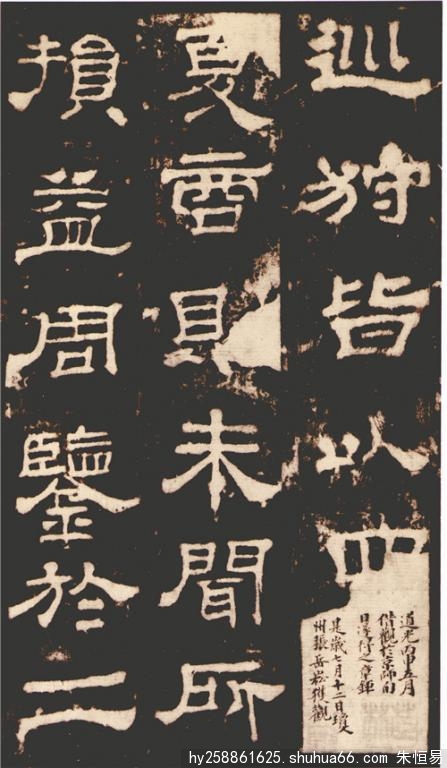 巡狩皆以四
夏商則未聞所
損益周鑒於二
道光丙申五月
借觀於京師旬
日章鉅
是歲七月十二日瓊
州張岳崧獲觀
hy258861625.shuhua66.com 朱恒易